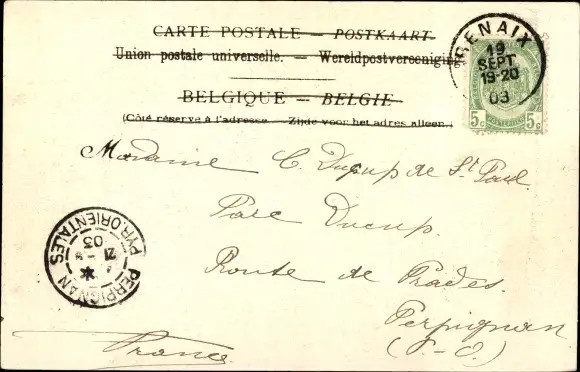 CARTE POSTALE — POSTKAART
Union postale universelle. — Wereldpostvereeniging
BELGIQUE — BELGIE
(Côté réservé à l'adresse. — Zijde voor het adres alleen.)
RENAIX
19
SEPT
19-20
03
5c 5c
Madame C. Ducup de St Paul
Parc Ducup.
Route de Prades.
Perpignan
(P-O)
France
PERPIGNAN
PYR. ORIENTALES
21 - 9
03